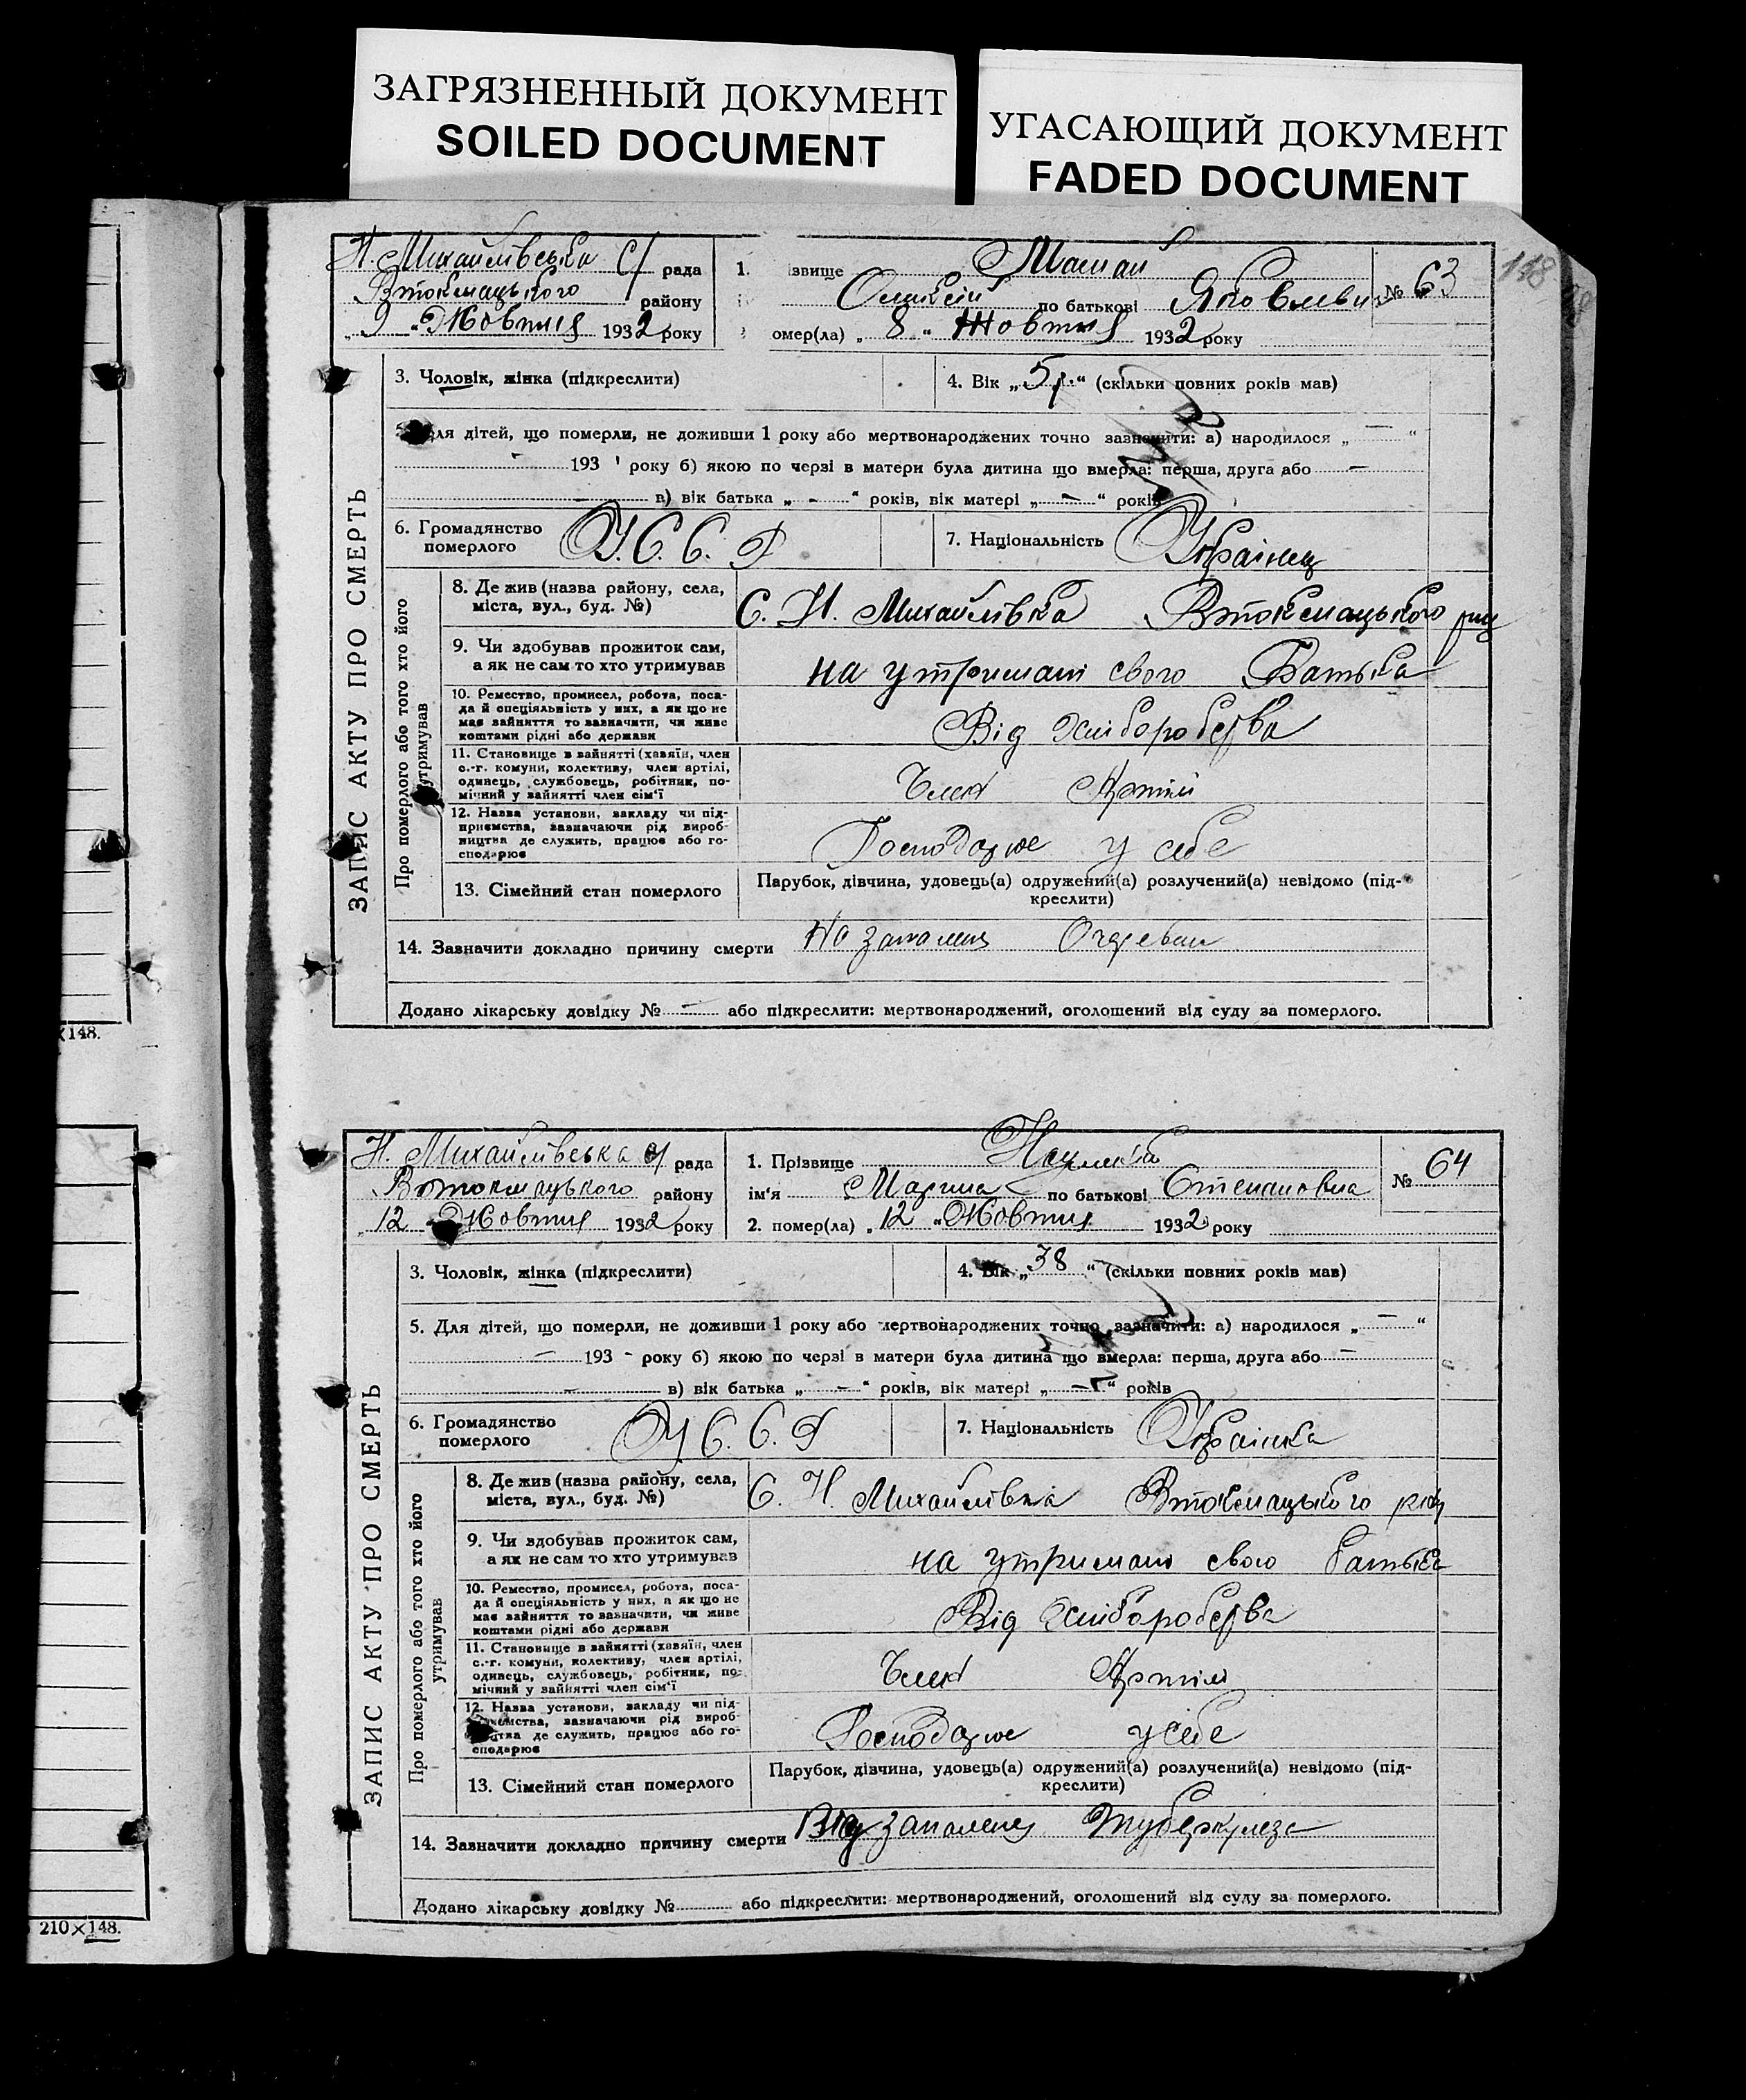 ЗАГРЯЗНЕННЫЙ ДОКУМЕНТ
SOILED DOCUMENT
УГАСАЮЩИЙ ДОКУМЕНТ
FADED DOCUMENT
118
Н. Михайлівська с/ рада
Втокмацького району
„9 „ Жовтня 1932 року
1. ізвище Мамай
Олексій по батькові Яковлевич
омер(ла) „ 8 „ Жовтня 1932 року
№ 63
ЗАПИС АКТУ ПРО СМЕРТЬ
3. Чоловік, жінка (підкреслити)
4. Вік „ 5 р. “ (скільки повних років мав)
для дітей, що померли, не доживши 1 року або мертвонароджених точно зазначити: а) народилося „ — “
193 року б) якою по черзі в матери була дитина що вмерла: перша, друга або —
в) вік батька „ - “ років, вік матері „ - “ років
6. Громадянство померлого У.С.С.Р
7. Національність Українец
Про померлого або того хто його утримував
8. Де жив (назва району, села,
міста, вул., буд. №)
С. Н. Михайлівка Втокмацького рну
9. Чи здобував прожиток сам,
а як не сам то хто утримував
на утримані свого Батька
10. Ремество, промисел, робота, поса-
да й спеціяльність у них, а як що не
має зайняття то зазначити, чи живе
коштами рідні або держави
Від Хліборобства
11. Становище в зайнятті (хазяїн, член
с.-г. комуни, колективу, член артілі,
одинець, службовець, робітник, по-
мічний у зайнятті член сім'ї
Член Артілі
12. Назва установи, закладу чи під-
приємства, зазначаючи рід вироб-
ництва де служить, працює або го-
сподарює
Господарює у себе
13. Сімейний стан померлого
Парубок, дівчина, удовець(а) одружений(а) розлучений(а) невідомо (під-
креслити)
14. Зазначити докладно причину смерти На запалення
Додано лікарську довідку № — або підкреслити: мертвонароджений, оголошений від суду за померлого.
×148.
Н. Михайлівська с/ рада
Втокмацького району
„12 „ Жовтня 1932 року
1. Прізвище
ім'я Марина по батькові Степановна
2. помер(ла) „ 12 „ Жовтня 1932 року
№ 64
ЗАПИС АКТУ ПРО СМЕРТЬ
3. Чоловік, жінка (підкреслити)
4. Вік „ 38 “ (скільки повних років мав)
5. Для дітей, що померли, не доживши 1 року або мертвонароджених точно зазначити: а) народилося „ — “
— 193 - року б) якою по черзі в матери була дитина що вмерла: перша, друга або —
— в) вік батька „ — “ років, вік матері „ — “ років
6. Громадянство померлого У.С.С.Р
7. Національність Українка
Про померлого або того хто його утримував
8. Де жив (назва району, села,
міста, вул., буд. №)
С. Н. Михайлівка Втокмацького рну
9. Чи здобував прожиток сам,
а як не сам то хто утримував
на утримані свого батька
10. Ремество, промисел, робота, поса-
да й спеціяльність у них, а як що не
має зайняття то зазначити, чи живе
коштами рідні або держави
Від Хліборобства
11. Становище в зайнятті (хазяїн, член
с.-г. комуни, колективу, член артілі,
одинець, службовець, робітник, по-
мічний у зайнятті член сім'ї
Член Артілі
12. Назва установи, закладу чи під-
приємства, зазначаючи рід вироб-
ництва де служить, працює або го-
сподарює
Господарює у себе
13. Сімейний стан померлого
Парубок, дівчина, удовець(а) одружений(а) розлучений(а) невідомо (під-
креслити)
14. Зазначити докладно причину смерти Від запалення Туберкулеза
Додано лікарську довідку № або підкреслити: мертвонароджений, оголошений від суду за померлого.
210×148.